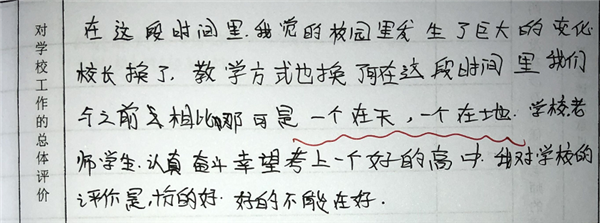 对学校工作的总体评价
在这段时间里.我觉的校园里发生了巨大的变化
校长换了.教学方式也换了而在这段时间里我们
与之前去相比那可是一个在天,一个在地.学校老
师学生.认真奋斗幸望考上一个好的高中.我对学校的
评价是,恰的好.好的不能在好.